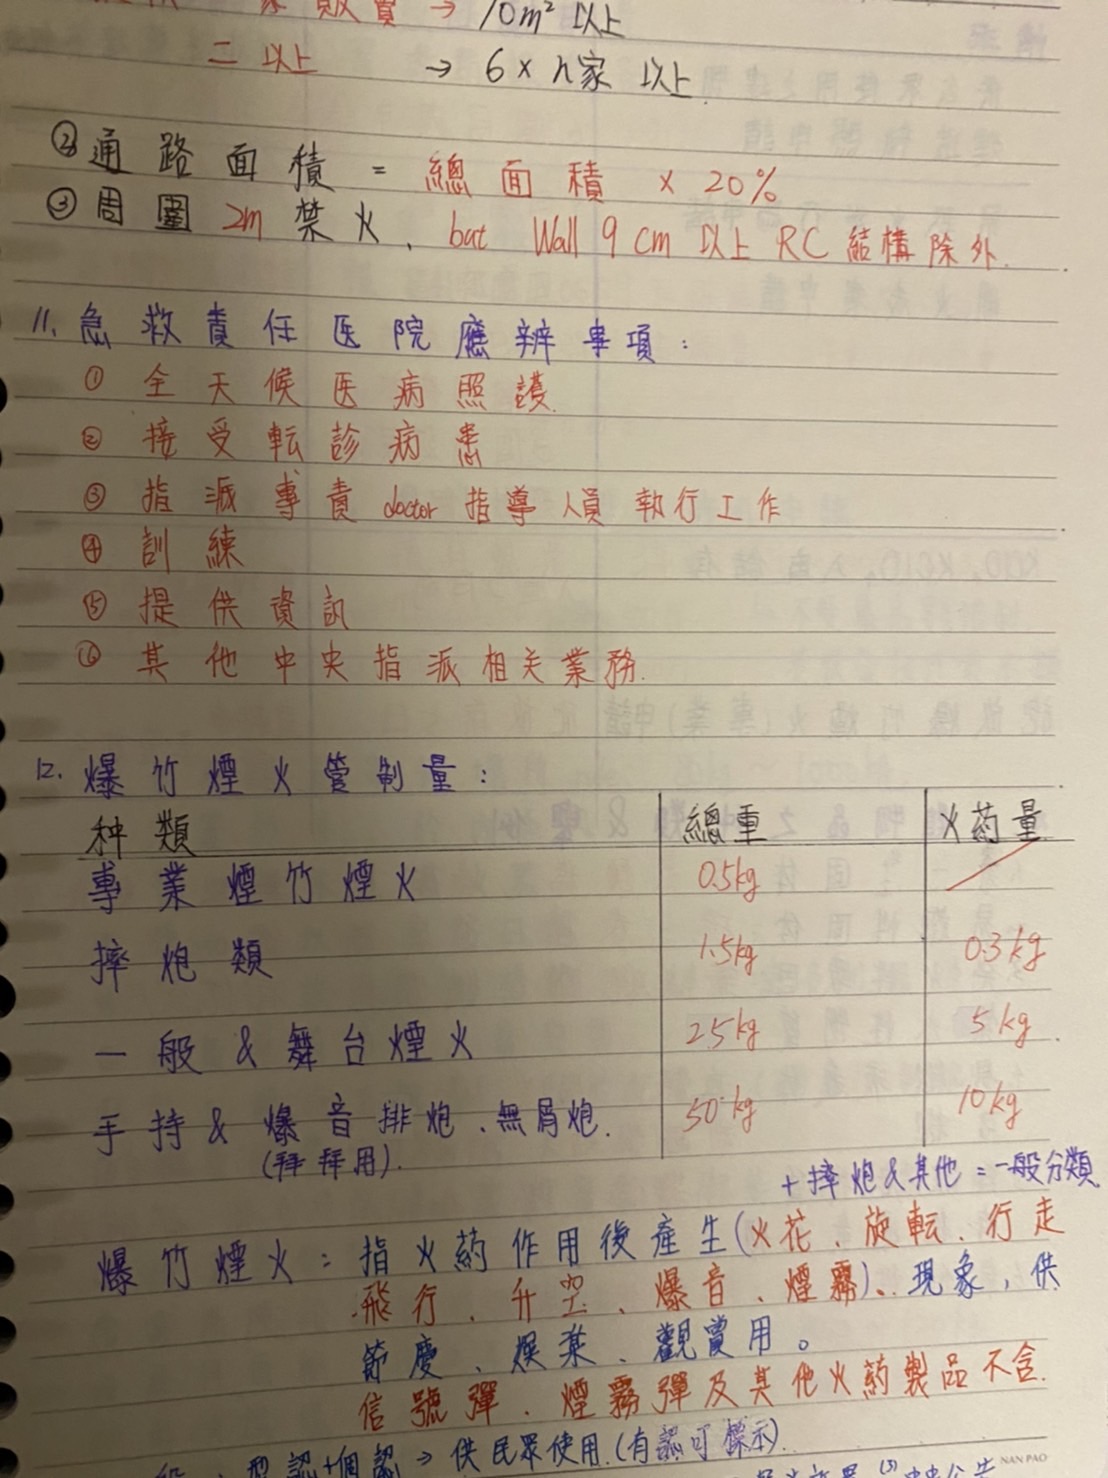 家販賣 → 10m² 以上
二以上 → 6 × n家 以上
② 通路面積 = 總面積 × 20%
③ 周圍 2m 禁火、but Wall 9 cm 以上 RC 結構除外.
11. 急救責任医院應辦事項:
① 全天候医病照護.
② 接受転診病患
③ 指派專責 doctor 指導人員執行工作
④ 訓練
⑤ 提供資訊
⑥ 其他中央指派相关業務.
12. 爆竹煙火管制量:
种類 總重 火药量
專業煙竹煙火 0.5kg
摔炮類 1.5kg 0.3kg
一般 & 舞台煙火 25kg 5kg
手持 & 爆音排炮、無屑炮. 50kg 10kg
(拜拜用).
+ 摔炮 & 其他 = 一般分類
爆竹煙火: 指火药作用後產生(火花、旋転、行走
飛行、升空、爆音、煙霧)、現象, 供
節慶、娛樂、觀賞用。
信號彈、煙霧彈及其他火药製品不含.
型認+個認 → 供民眾使用.(有認可標示).
NAN PAO